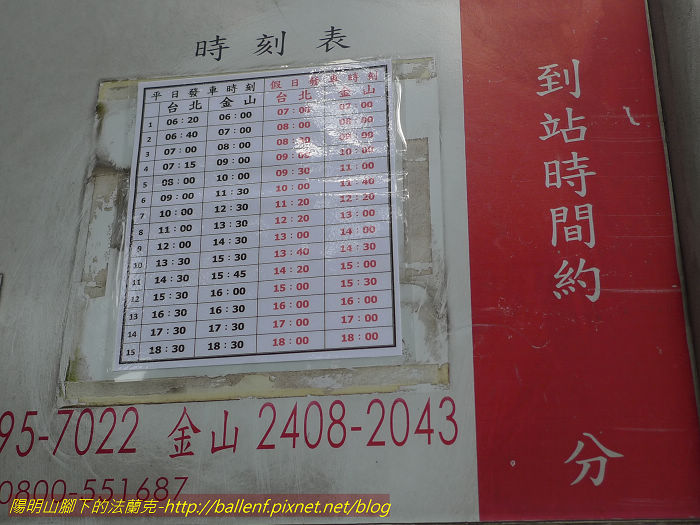 時刻表
平日發車時刻 假日發車時刻
台北 金山 台北 金山
1 06:20 06:00 07:00 07:00
2 06:40 07:00 08:00 08:00
3 07:00 08:00 08:30 09:00
4 07:15 09:00 09:00 10:00
5 08:00 10:00 09:30 11:00
6 09:00 11:30 10:00 11:40
7 10:00 12:30 11:20 12:20
8 11:00 13:30 12:20 13:00
9 12:00 14:30 13:00 14:00
10 13:30 15:30 13:40 14:30
11 14:30 15:45 14:20 15:00
12 15:30 16:00 15:00 15:30
13 16:30 16:30 16:00 16:00
14 17:30 17:30 17:00 17:00
15 18:30 18:30 18:00 18:00
到站時間約 分
95-7022 金山 2408-2043
0800-551687
陽明山腳下的法蘭克-http://ballenf.pixnet.net/blog